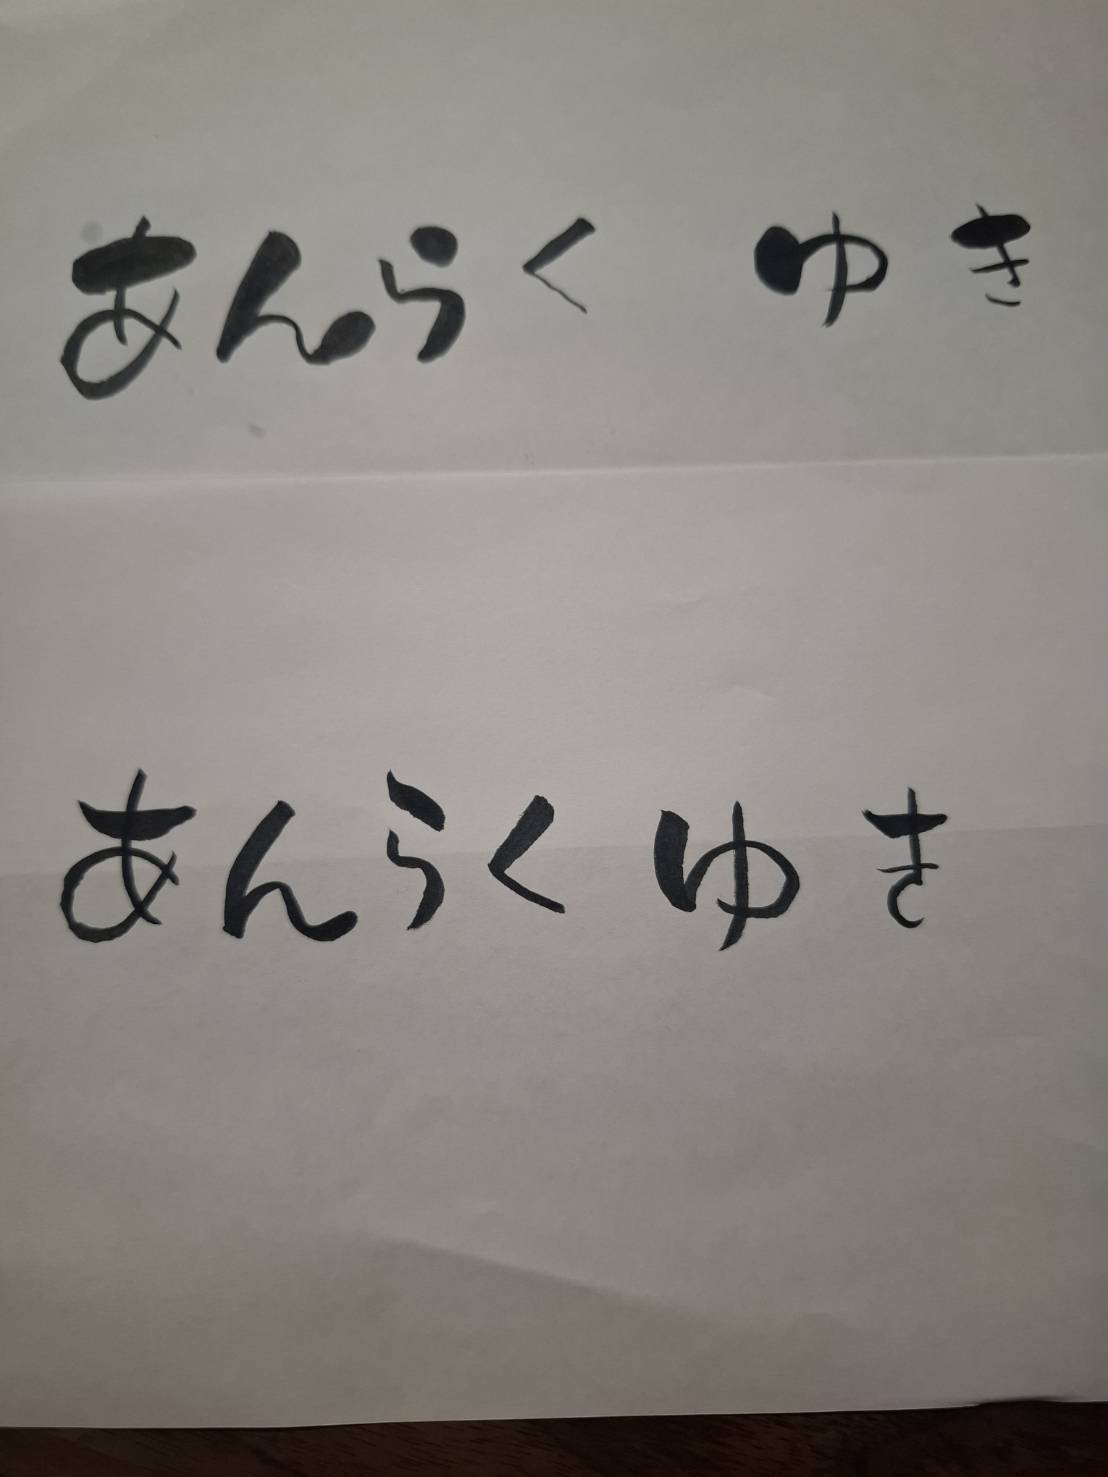 あんらく ゆき
あんらくゆき